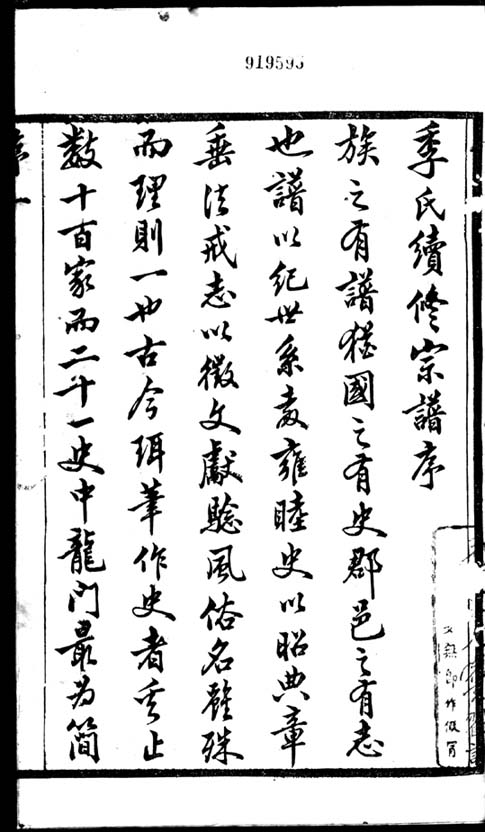 919595
季氏續修宗譜序
族之有譜猶國之有史郡邑之有志
也譜以紀世系敦雍睦史以昭典章
垂法戒志以徵文獻騐風俗名雖殊
而理則一也古今珥筆作史者不止
數十百家而二十一史中龍門最為簡